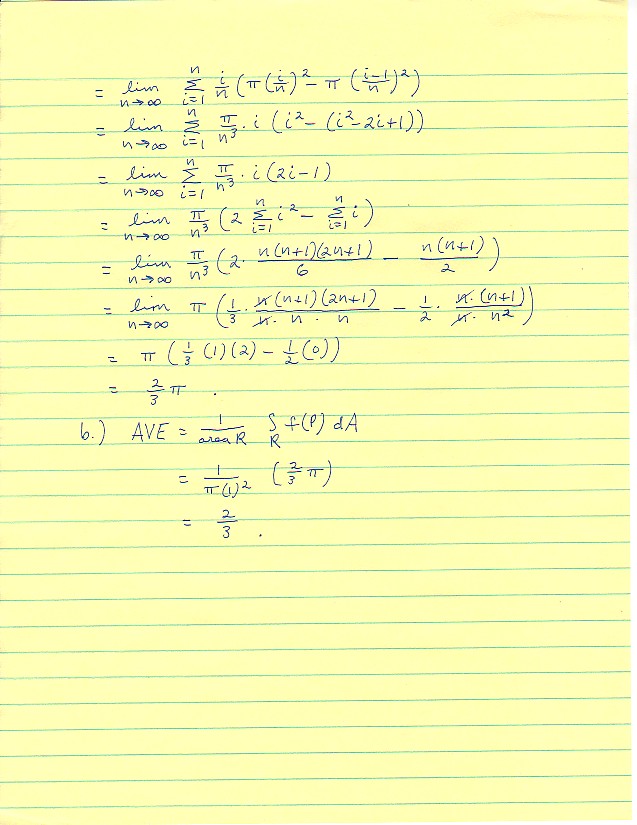 = lim n→∞ Σ i=1 n i/n (π(i/n)² − π(i−1/n)²)
= lim n→∞ Σ i=1 n π/n³ · i (i² − (i² − 2i + 1))
= lim n→∞ Σ i=1 n π/n³ · i (2i − 1)
= lim n→∞ π/n³ (2 Σ i=1 n i² − Σ i=1 n i)
= lim n→∞ π/n³ (2 · n(n+1)(2n+1)/6 − n(n+1)/2)
= lim n→∞ π (1/3 · n(n+1)(2n+1)/n · n · n − 1/2 · n·(n+1)/n · n²)
= π (1/3 (1)(2) − 1/2 (0))
= 2/3 π .
b.) AVE = 1/area R ∫ R f(P) dA
= 1/π(1)² (2/3 π)
= 2/3 .